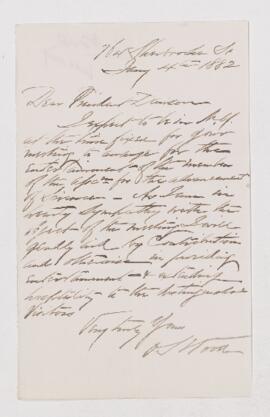 Sherbrooke St
4th 1882
Dear Principal Dawson
I expect to be in
at the time fixed for your
meeting to arrange for the
Entertainment of the members
of the for the advancement
of Science - As I am in
Sympathy with the
object of the meeting I will
gladly aid by Contribution
and otherwise in providing
Entertainment - & extending
hospitality to the distinguished
Visitors
Very truly Yours